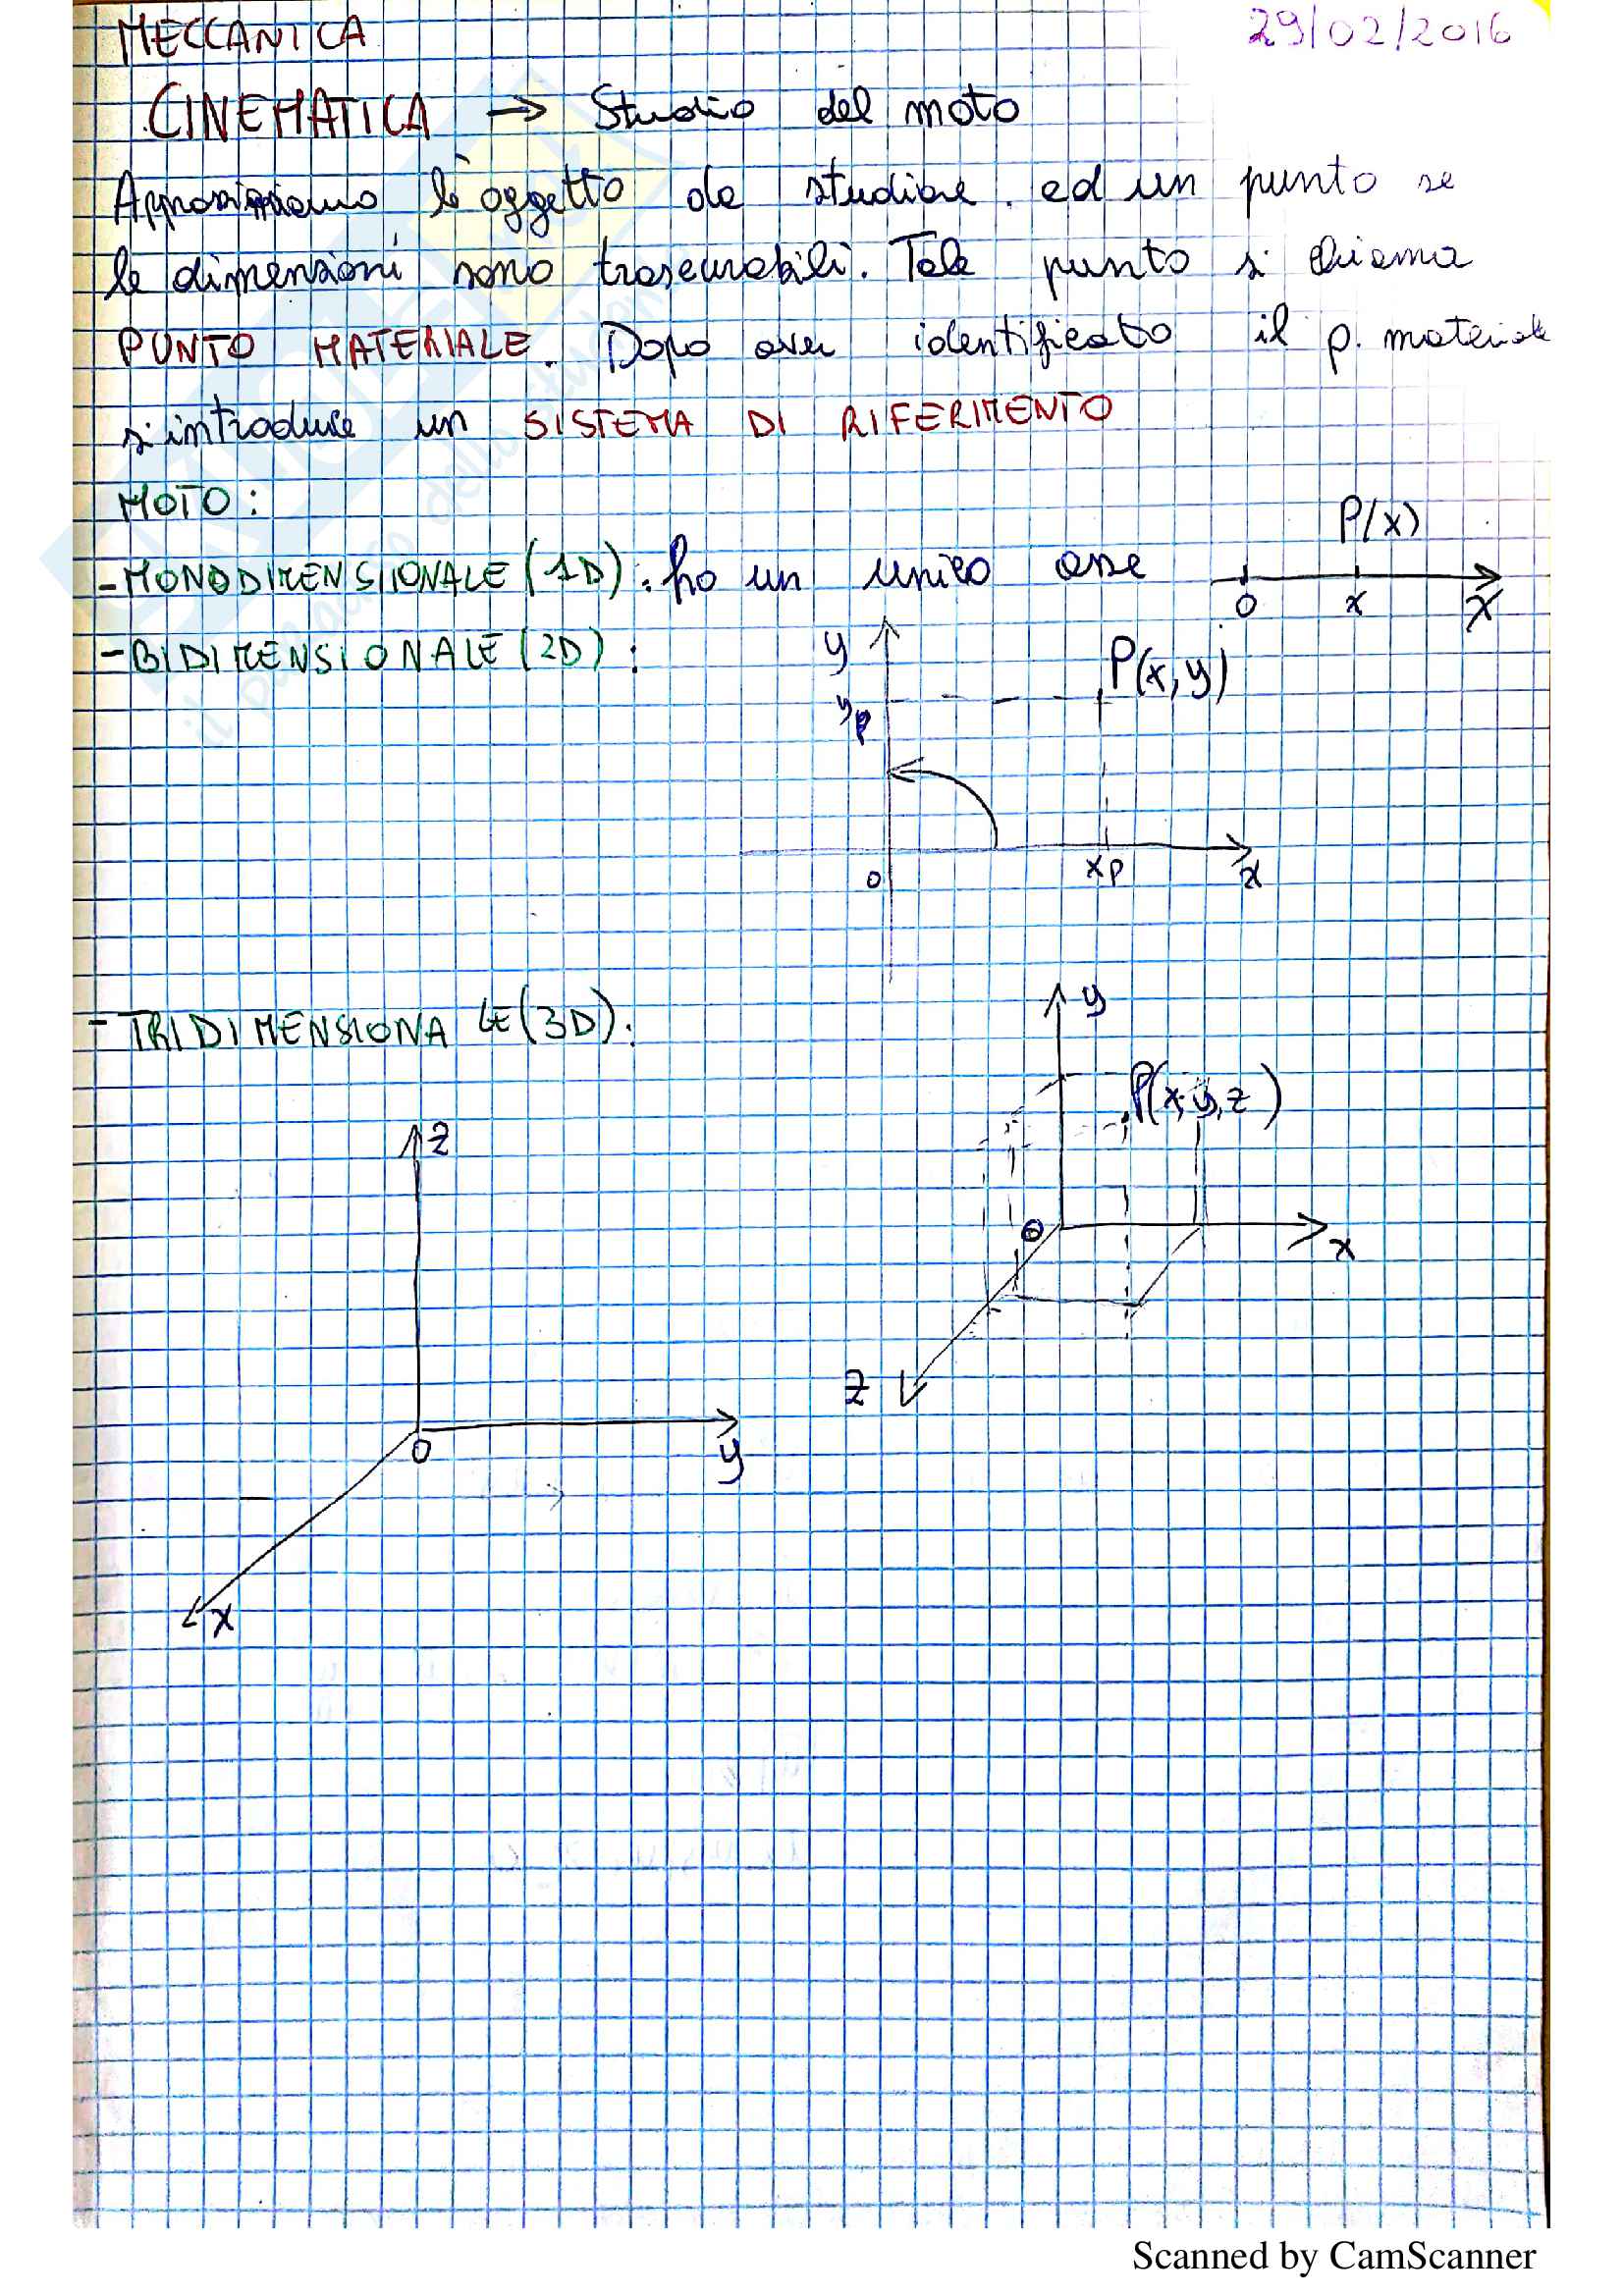 MECCANICA
29/02/2016
CINEMATICA → Studio del moto
Approssimiamo l'oggetto da studiare ad un punto se
le dimensioni sono trascurabili. Tale punto si chiama
PUNTO MATERIALE. Dopo aver identificato il p. materiale
si introduce un SISTEMA DI RIFERIMENTO
MOTO:
- MONODIMENSIONALE (1D): ho un unico asse
P(x)
0 x X
- BIDIMENSIONALE (2D):
y
P(x,y)
yp
0 xp x
- TRIDIMENSIONALE (3D):
y
P(x,y,z)
z
0 x
z
0 y
x
Scanned by CamScanner